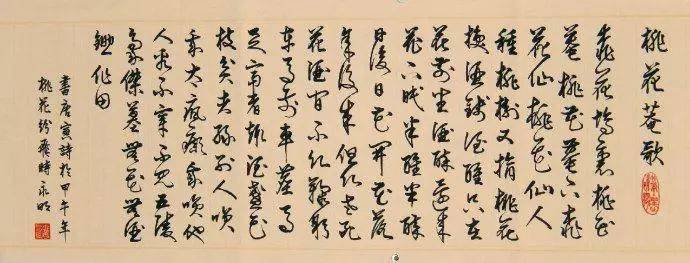 桃花菴歌
桃花塢裏桃花
菴桃花菴下桃
花仙桃花仙人
種桃樹又摘桃花
換酒錢酒醒只在
花前坐酒醉還來
花下眠半醒半醉
日復日花開花落
年復年但願老死
花酒間不願鞠躬
車馬前車塵馬
足富者趣酒盞花
枝貧者緣別人咲
我太瘋癲我咲他
人看不穿不見五陵
豪傑墓無花無酒
鋤作田
書唐寅詩於甲午年
桃花紛飛時永明